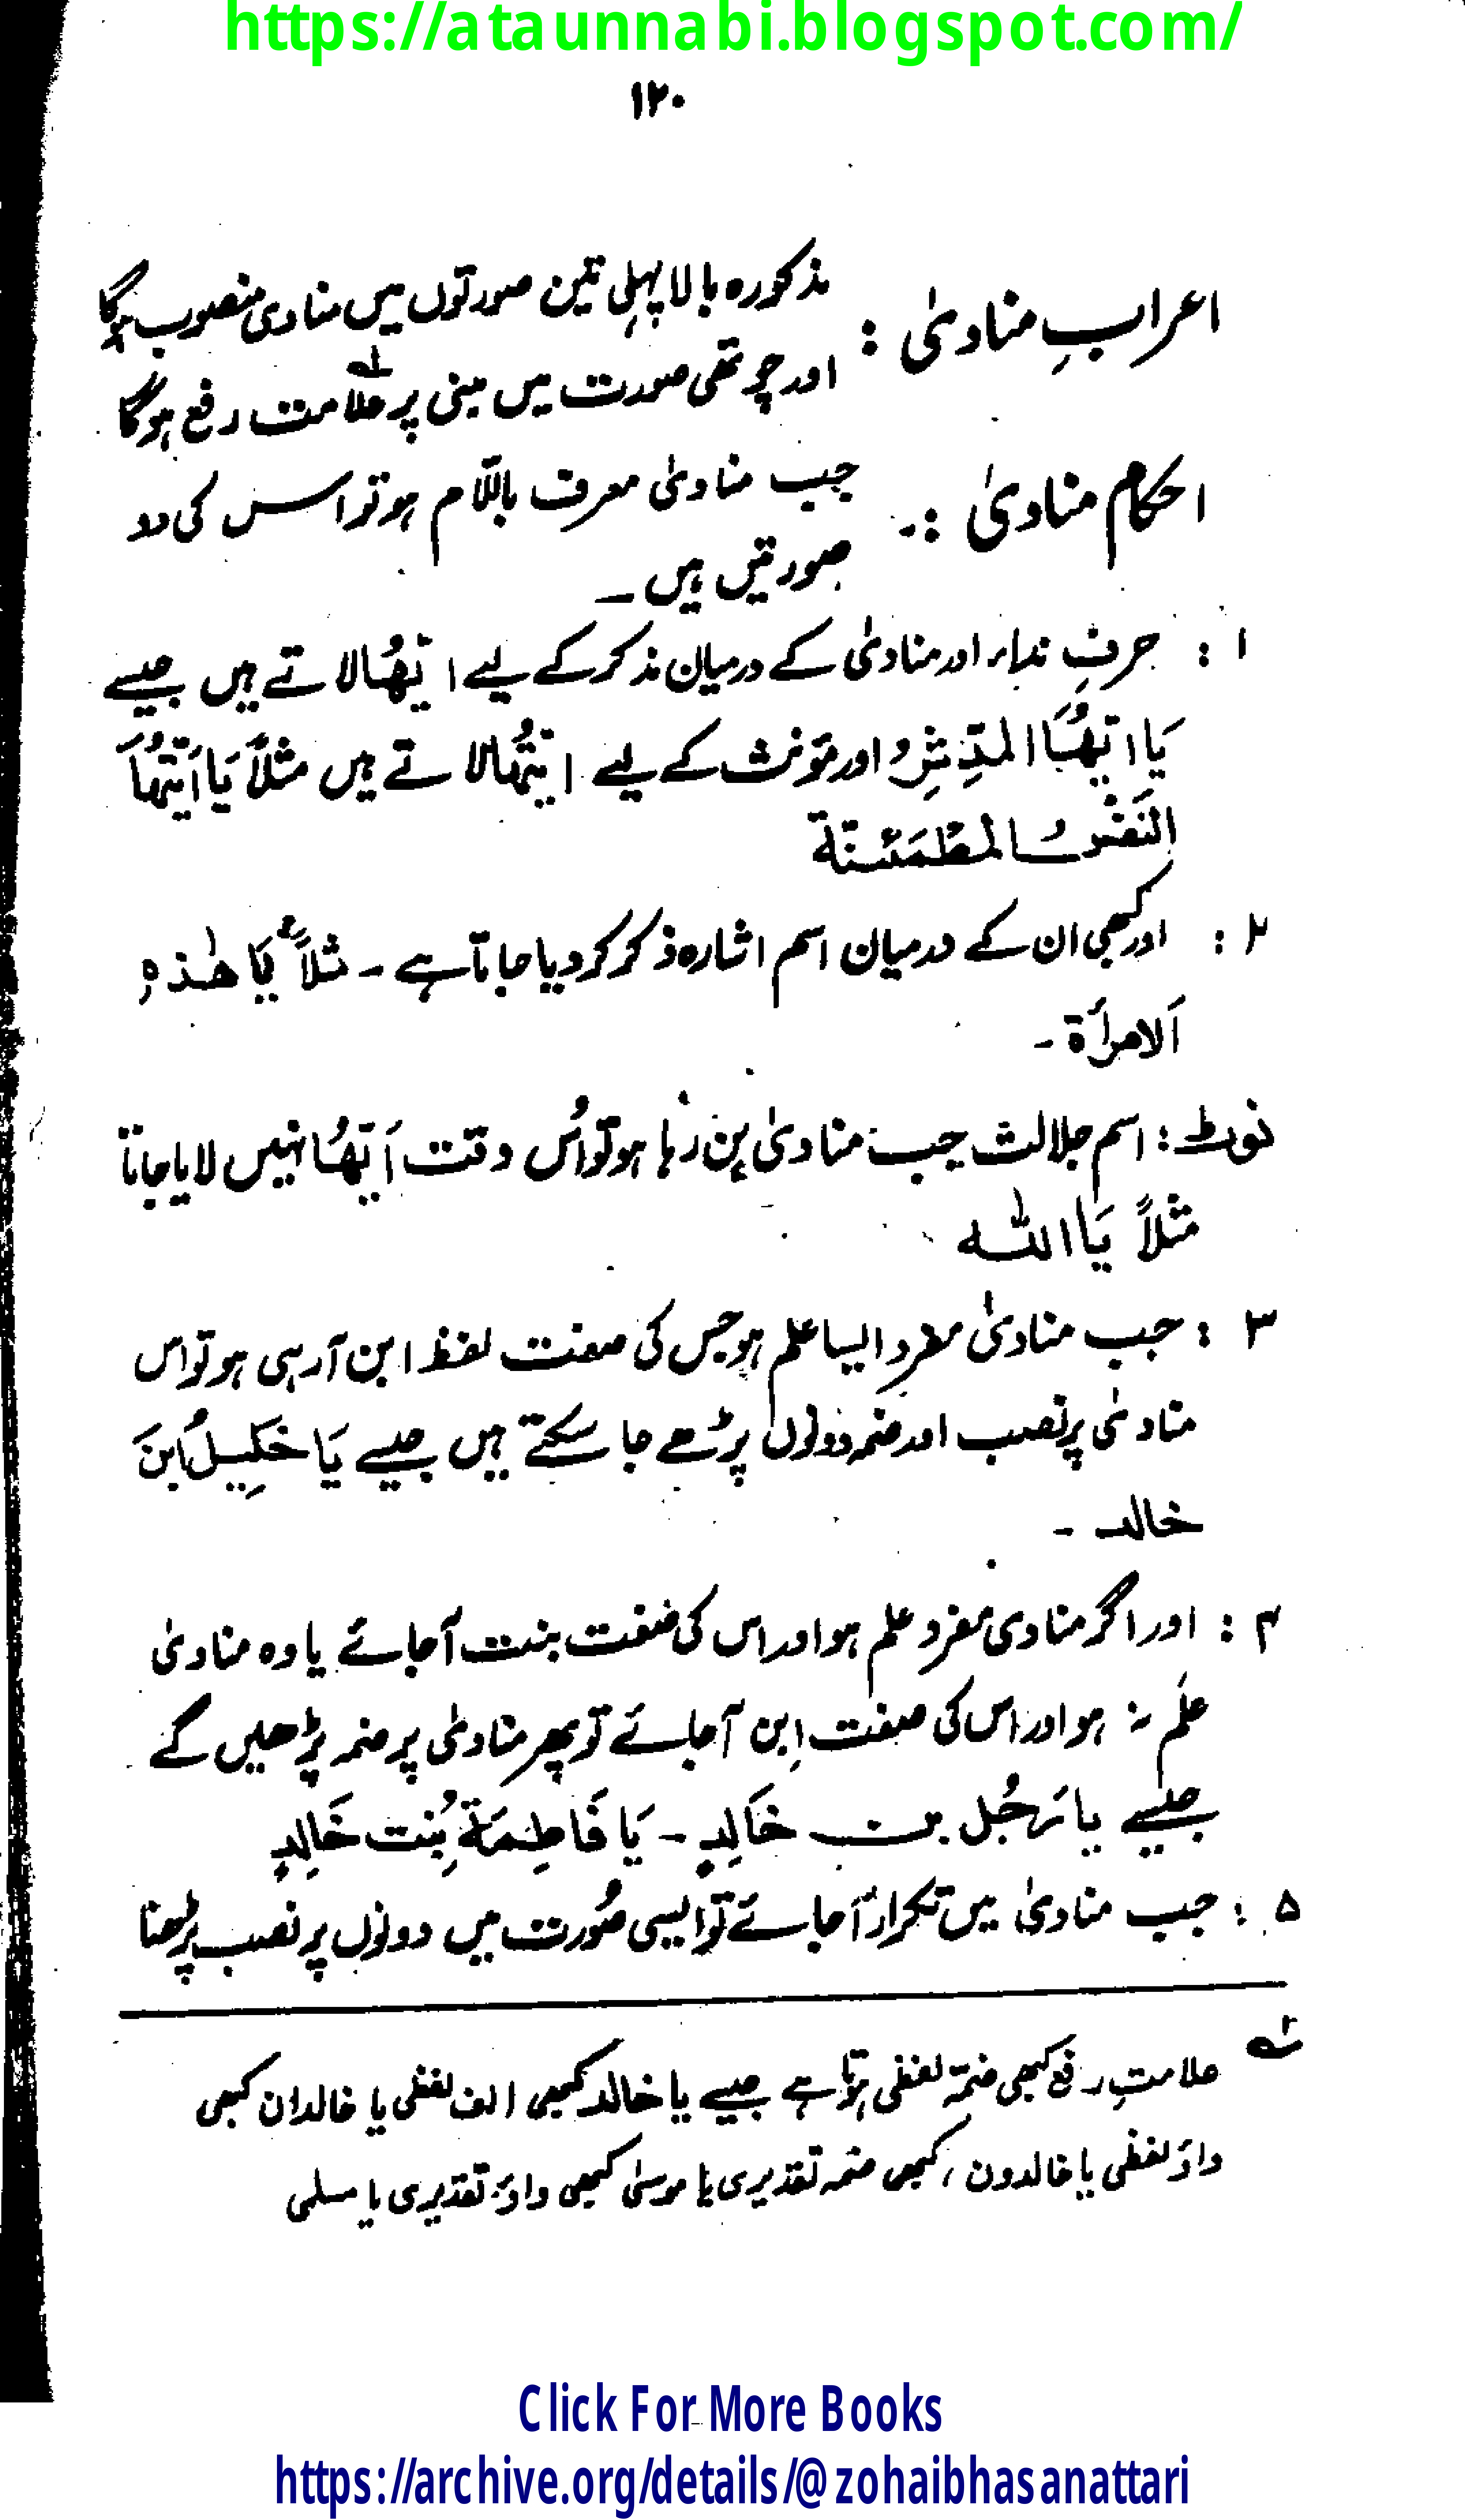 https://ataunnabi.blogspot.com/
۱۲۰
اعرابِ منادیٰ : مذکورہ بالا پہلی تین صورتوں میں منادی منصوب ہوگا
اور چوتھی صورت میں مبنی بر علامت رفع ہوگا
احکام منادیٰ :۔ جب منادیٰ معرف باللّام ہو تو اس کی دو
صورتیں ہیں ۔
۱ : حرفِ نداء اور منادیٰ کے درمیان مذکر کے لیے ایّھُا لاتے ہیں جیسے
یَا ایّھُا المدّثِرُ اور مؤنث کے لیے ایّتھُا لاتے ہیں مثلاً یَا اَیّتھُا
النَفسُ المطمَئنّة
۲ : اور کبھی ان کے درمیان اسم اشارہ ذکر کر دیا جاتا ہے ۔ مثلاً یَا ھٰذہِ
اَلامرأة ۔
نوٹ : اسم جلالت جب منادیٰ بن رہا ہو تو اُس وقت اَیّھُا نہیں لایا جاتا
مثلاً یَا اللّٰہ
۳ : جب منادیٰ مفرد ایسا علم ہو جس کی صفت لفظ ابن آ رہی ہو تو اس
منادیٰ پر نصب اور ضمہ دونوں پڑھے جا سکتے ہیں جیسے یَا خَلِیلُ ابنَ
خالد ۔
۴ : اور اگر منادی مفرد علم ہو اور اس کی صفت بنت آ جائے یا وہ منادیٰ
علَم نہ ہو اور اس کی صفت اِبن آ جائے تو پھر منادیٰ پر ضمہ پڑھیں گے
جیسے یا رَجُل بن خَالِدٍ ۔ یَا فَاطِمَةُ بِنت خَالِدٍ
۵ : جب منادیٰ میں تکرار آ جائے تو ایسی صُورت میں دونوں پر نصب پڑھنا
لہ علامتِ رفع کبھی ضمّہ لفظی ہوتا ہے جیسے یا خالد کبھی الف لفظی یا خالدان کبھی
واؤ لفظی یا خالدون ، کبھی ضمہ تقدیری یا موسیٰ کبھی واؤ تقدیری یا مسلمی
Click For More Books
https://archive.org/details/@zohaibhasanattari